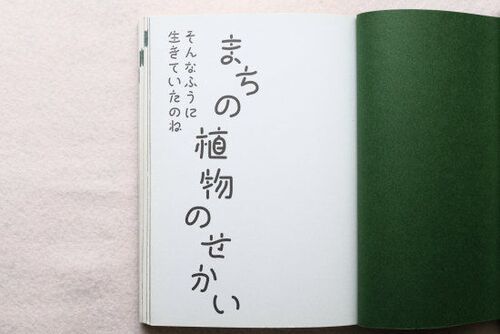 そんなふうに
生きていたのね
まちの植物のせかい